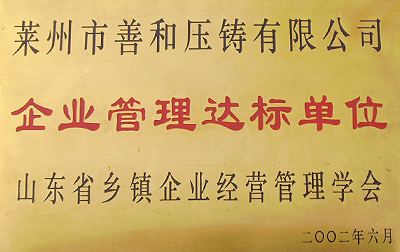 莱州市善和压铸有限公司
企业管理达标单位
山东省乡镇企业经营管理学会
二〇〇二年六月